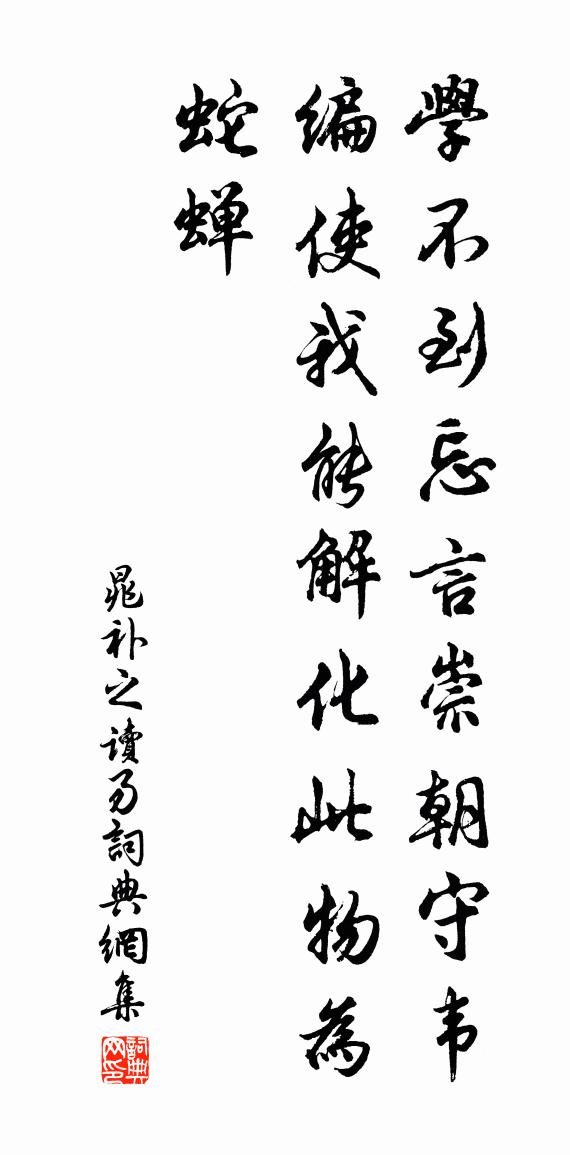 學不到忘言崇朝守韦
编使我能解化此物為
蛇蝉
晁补之读易詞典網集
詞典
网印